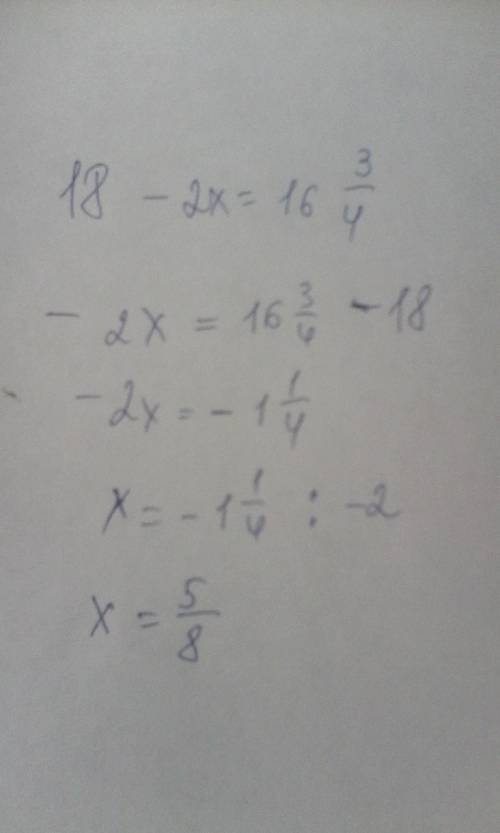 18 - 2x = 16 3/4
- 2x = 16 3/4 - 18
- 2x = - 1 1/4
x = - 1 1/4 : -2
x = 5/8